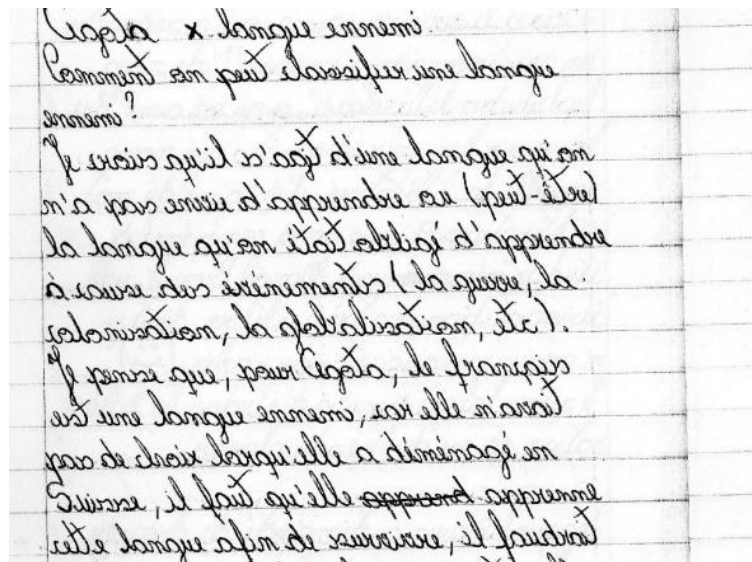 Agota x langue ennemi.
Comment on peut classifier une langue
ennemi?
Je crois qu'il s'agit d'une langue qu'on
n'a pas envie d'apprendre ou (peut-être)
la langue qu'on était obligé d'apprendre
à cause des évènements (la guerre, la
colonisation, la globalisation, etc).
Je pense que, pour Agota, le français
est une langue ennemi, car elle n'avait
pas de choix lorqu'elle a déménagé en
Suisse, il faut qu'elle apprend apprenne
cette langue afin de survivre, il faudrait